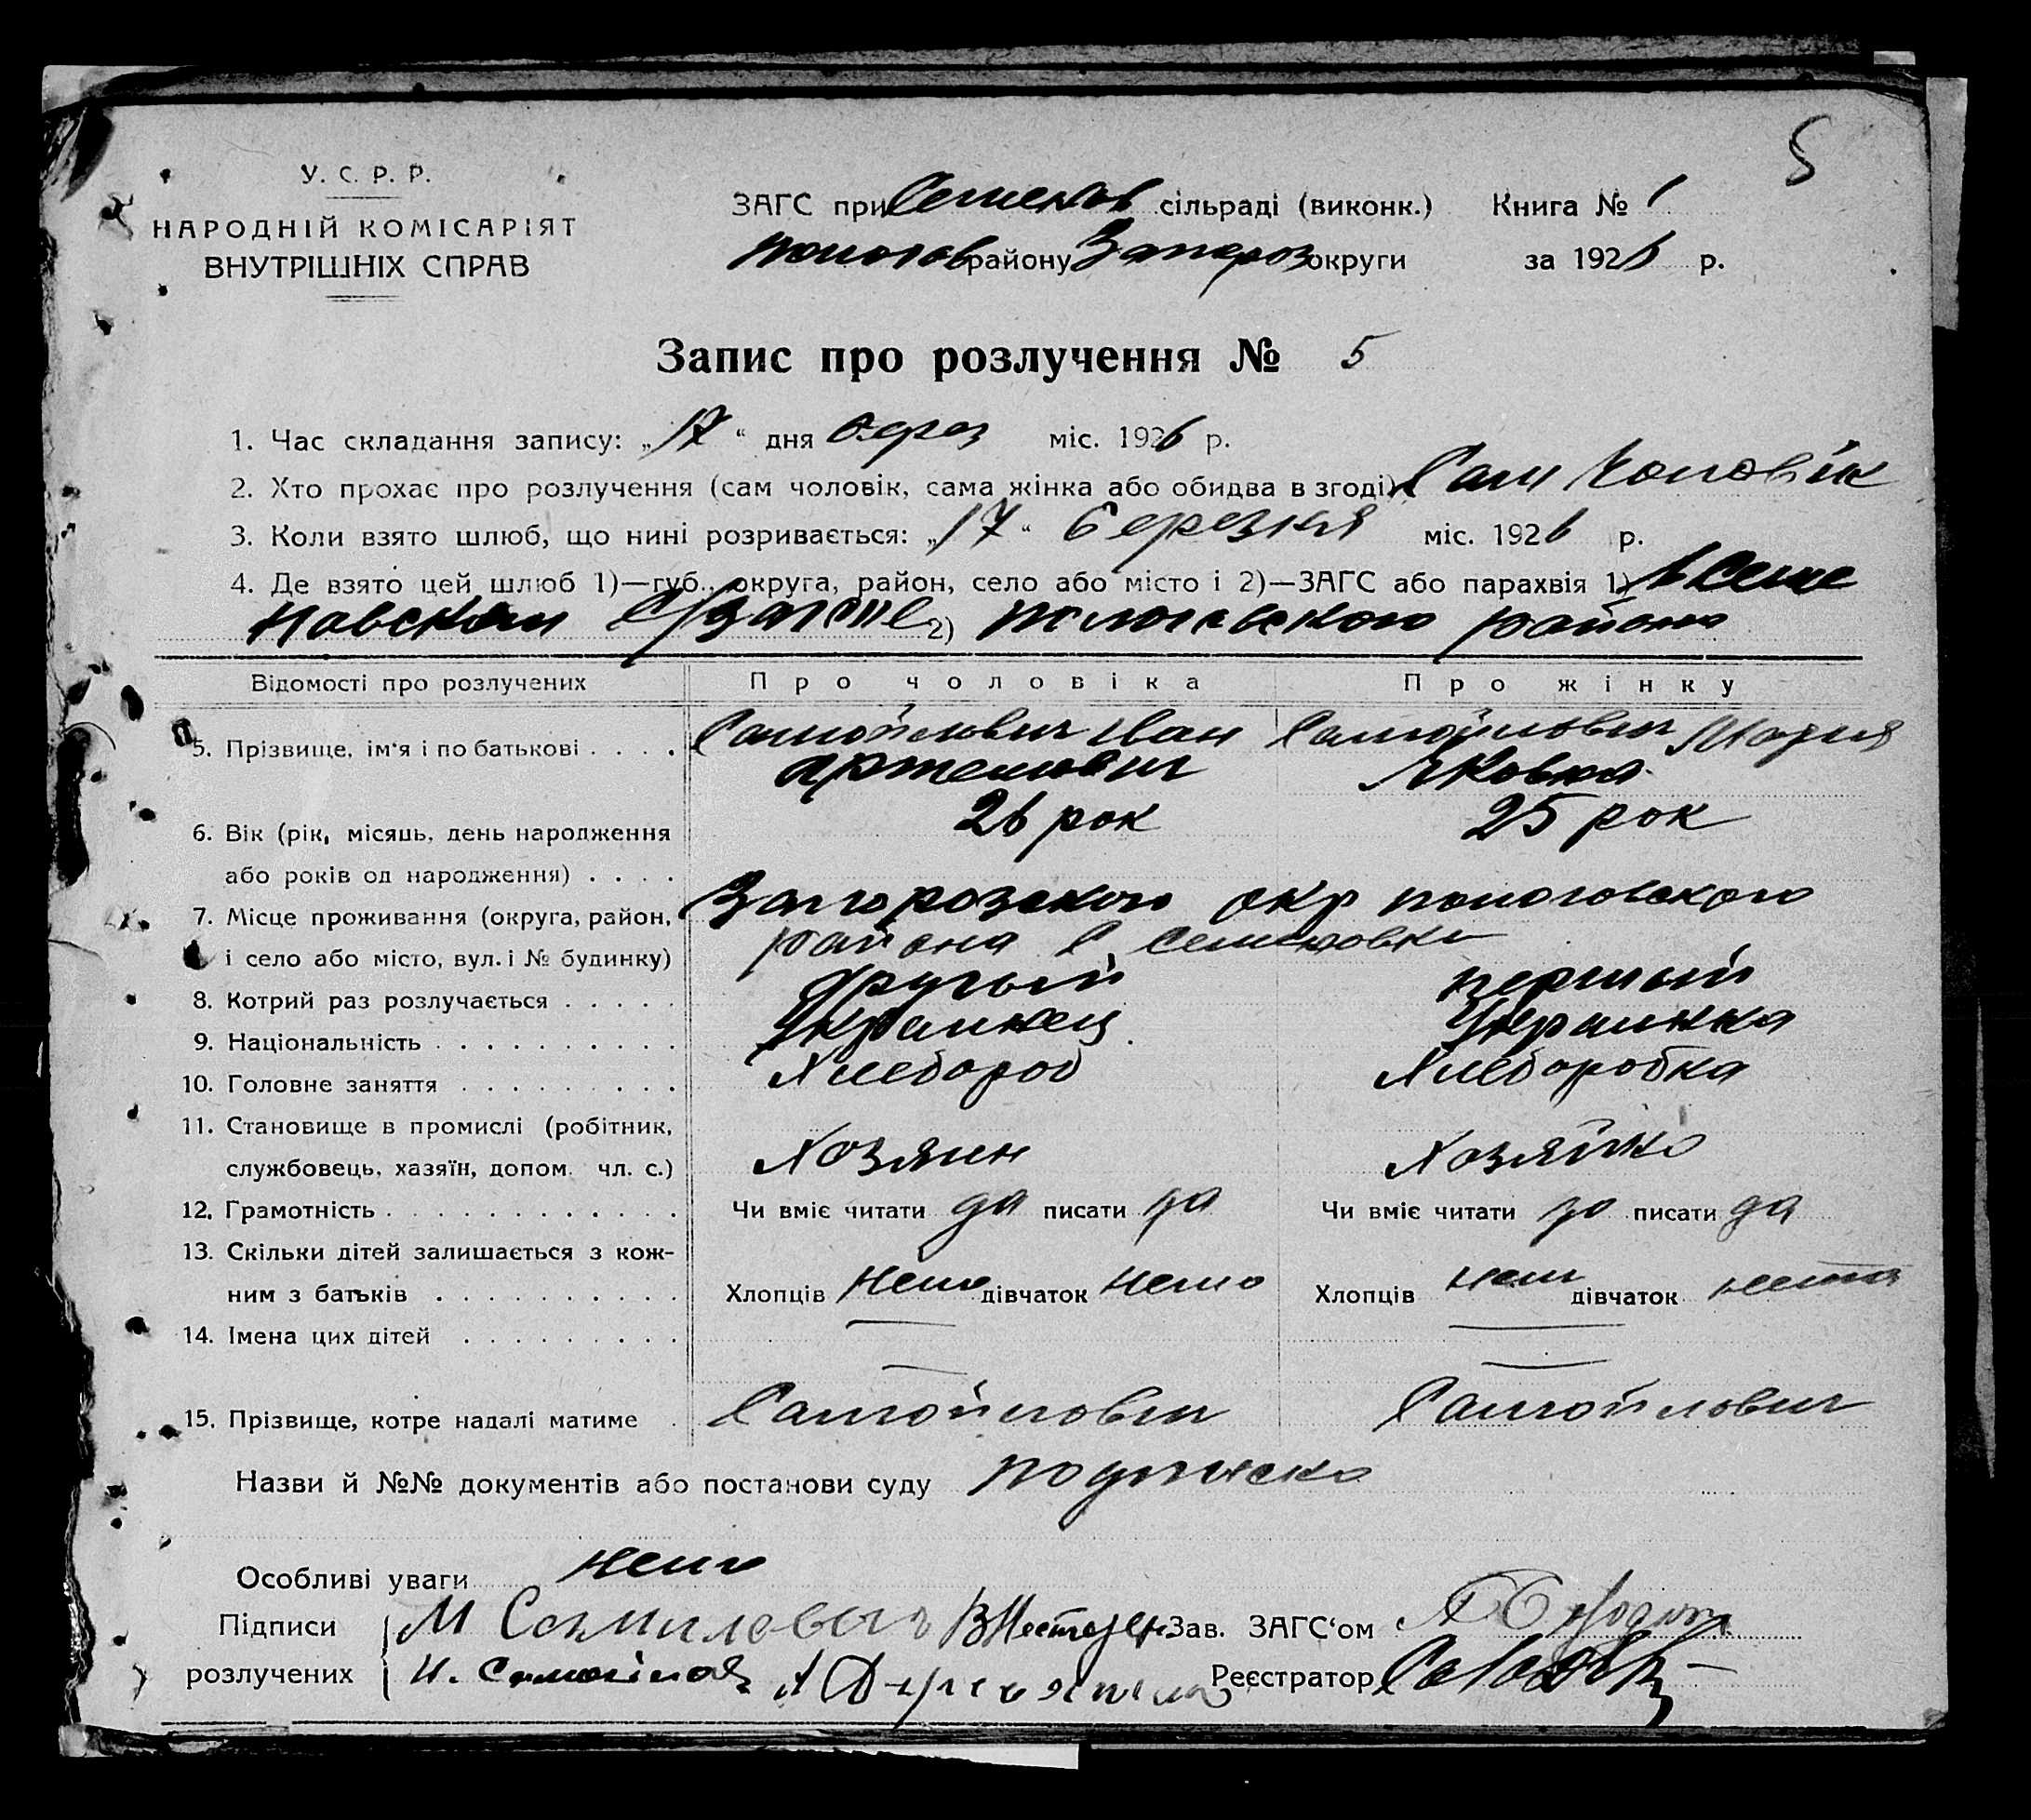 5
У. С. Р. Р.
НАРОДНІЙ КОМІСАРІЯТ
ВНУТРІШНІХ СПРАВ
ЗАГС при Семенов сільраді (виконк.) Книга № 1
пологов району Запороз округи за 1926 р.
Запис про розлучення № 5
1. Час складання запису: „17“ дня берез міс. 1926 р.
2. Хто прохає про розлучення (сам чоловік, сама жінка або обидва в згоді) Сам Чоловік
3. Коли взято шлюб, що нині розривається: „17“ березня міс. 1926 р.
4. Де взято цей шлюб 1)—губ., округа, район, село або місто і 2)—ЗАГС або парахвія 1) в Семе
новском 2) пологовского района
Відомості про розлучених Про чоловіка Про жінку
5. Прізвище, ім'я і по батькові . . . . Самойлович Иван Самойлович Мария
Артемович Яковна
6. Вік (рік, місяць, день народження 26 рок 25 рок
або років од народження) . . . .
7. Місце проживання (округа, район, Запорозского окр пологовского
і село або місто, вул. і № будинку) района С Семеновки
8. Котрий раз розлучається . . . . . другый первый
9. Національність . . . . . . . . . . Украинец Украинка
10. Головне заняття . . . . . . . . . Хлебороб Хлеборобка
11. Становище в промислі (робітник,
службовець, хазяїн, допом. чл. с.) Хозяин Хозяйка
12. Грамотність . . . . . . . . . . . . . Чи вміє читати да писати да Чи вміє читати да писати да
13. Скільки дітей залишається з кож-
ним з батьків . . . . . . . . . . Хлопців нема дівчаток нема Хлопців нем дівчаток нема
14. Імена цих дітей . . . . . . . . .
15. Прізвище, котре надалі матиме . Самойлович Самойлович
Назви й №№ документів або постанови суду подписка
Особливі уваги нема
Підписи М Самилович В Нестерен Зав. ЗАГС'ом
розлучених И. Самойлов Реєстратор